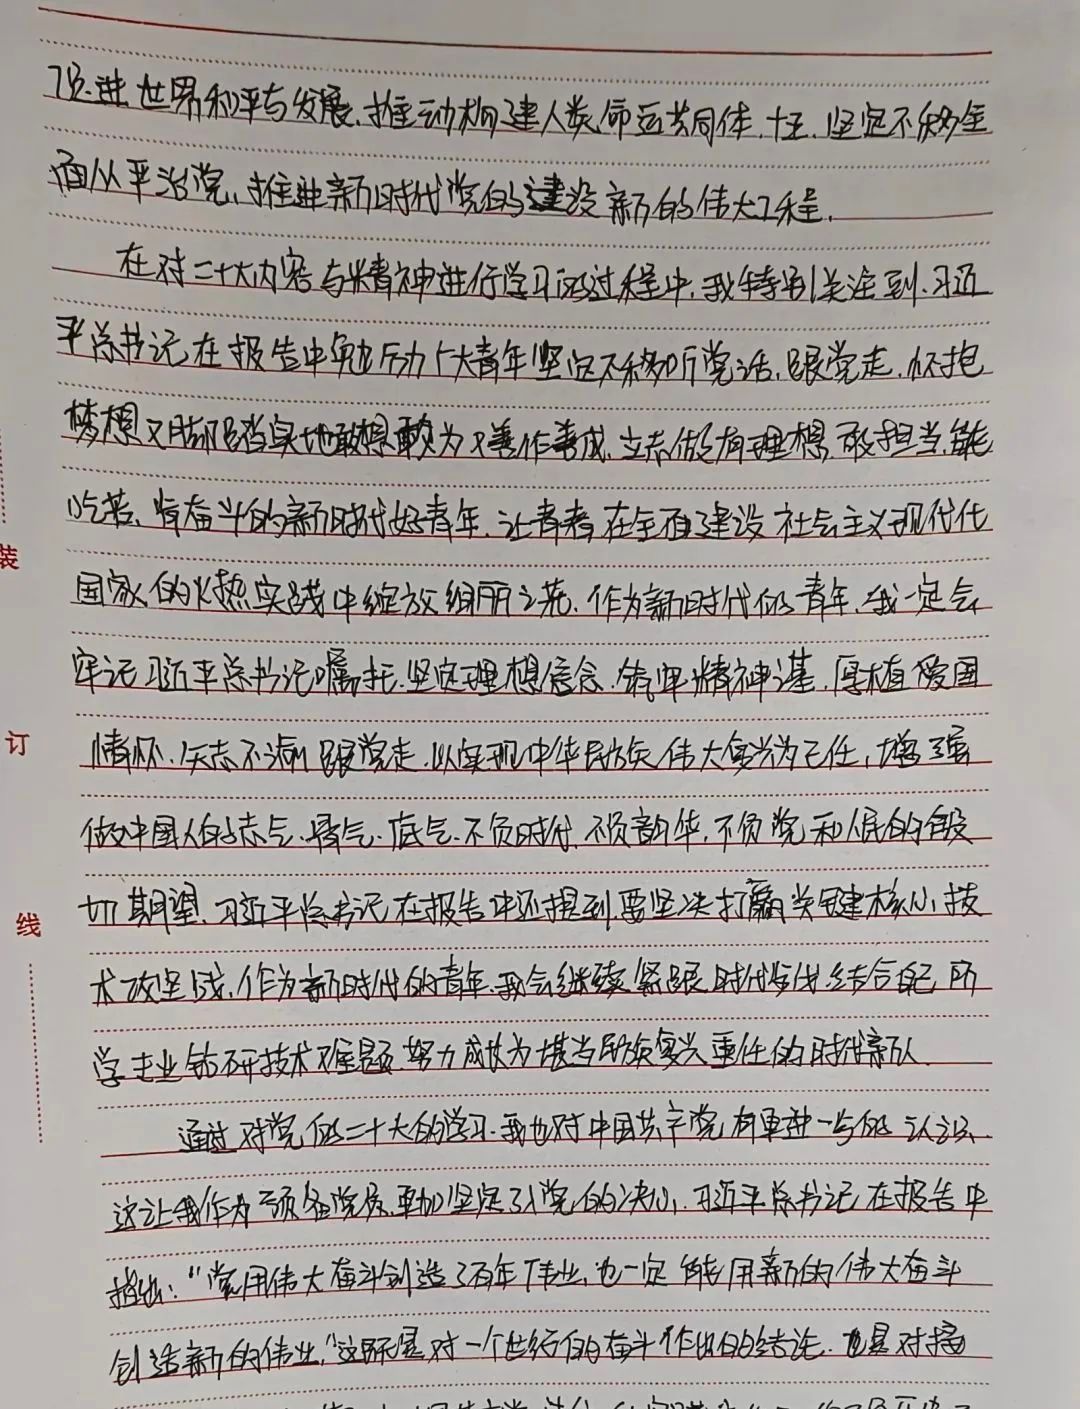 促进世界和平与发展，推动构建人类命运共同体，十五、坚定不移全
面从严治党，推进新时代党的建设新的伟大工程。
在对二十大内容与精神进行学习的过程中，我特别关注到，习近
平总书记在报告中勉励广大青年坚定不移听党话，跟党走，怀抱
梦想又脚踏实地敢想敢为又善作善成，立志做有理想，敢担当，能
吃苦、肯奋斗的新时代好青年，让青春在全面建设社会主义现代化
国家的火热实践中绽放绚丽之花。作为新时代的青年，我一定会
牢记习近平总书记嘱托，坚定理想信念，筑牢精神谨，厚植爱国
情怀，矢志不渝跟党走，以实现中华民族伟大复兴为己任，增强
做中国人的志气、骨气、底气，不负时代，不负韶华，不负党和人民的殷
切期望，习近平总书记在报告中还提到，要坚决打赢关键核心技
术攻坚战，作为新时代的青年，我会继续紧跟时代步伐，结合自己所
学专业钻研技术难题，努力成长为堪当民族复兴重任的时代新人
通过对党的二十大的学习，我也对中国共产党有更进一步的认识，
这让我作为预备党员更加坚定了入党的决心，习近平总书记在报告中
指出：“党用伟大奋斗创造了百年伟业，也一定能用新的伟大奋斗
创造新的伟业，”这既是对一个世纪的奋斗作出的结论，也是对接
装
订
线